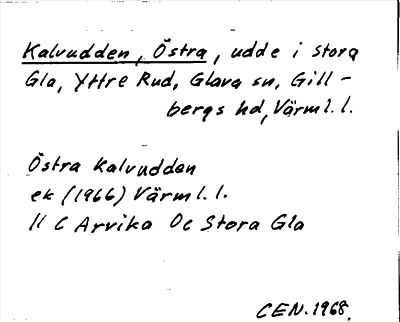 Kalvudden, Östra, udde i Stora
Gla, Yttre Rud, Glava sn, Gill-
bergs hd, Värml. l.
Östra Kalvudden
ek (1966) Värml. l.
11 C Arvika Oc Stora Gla
CEN. 1968.